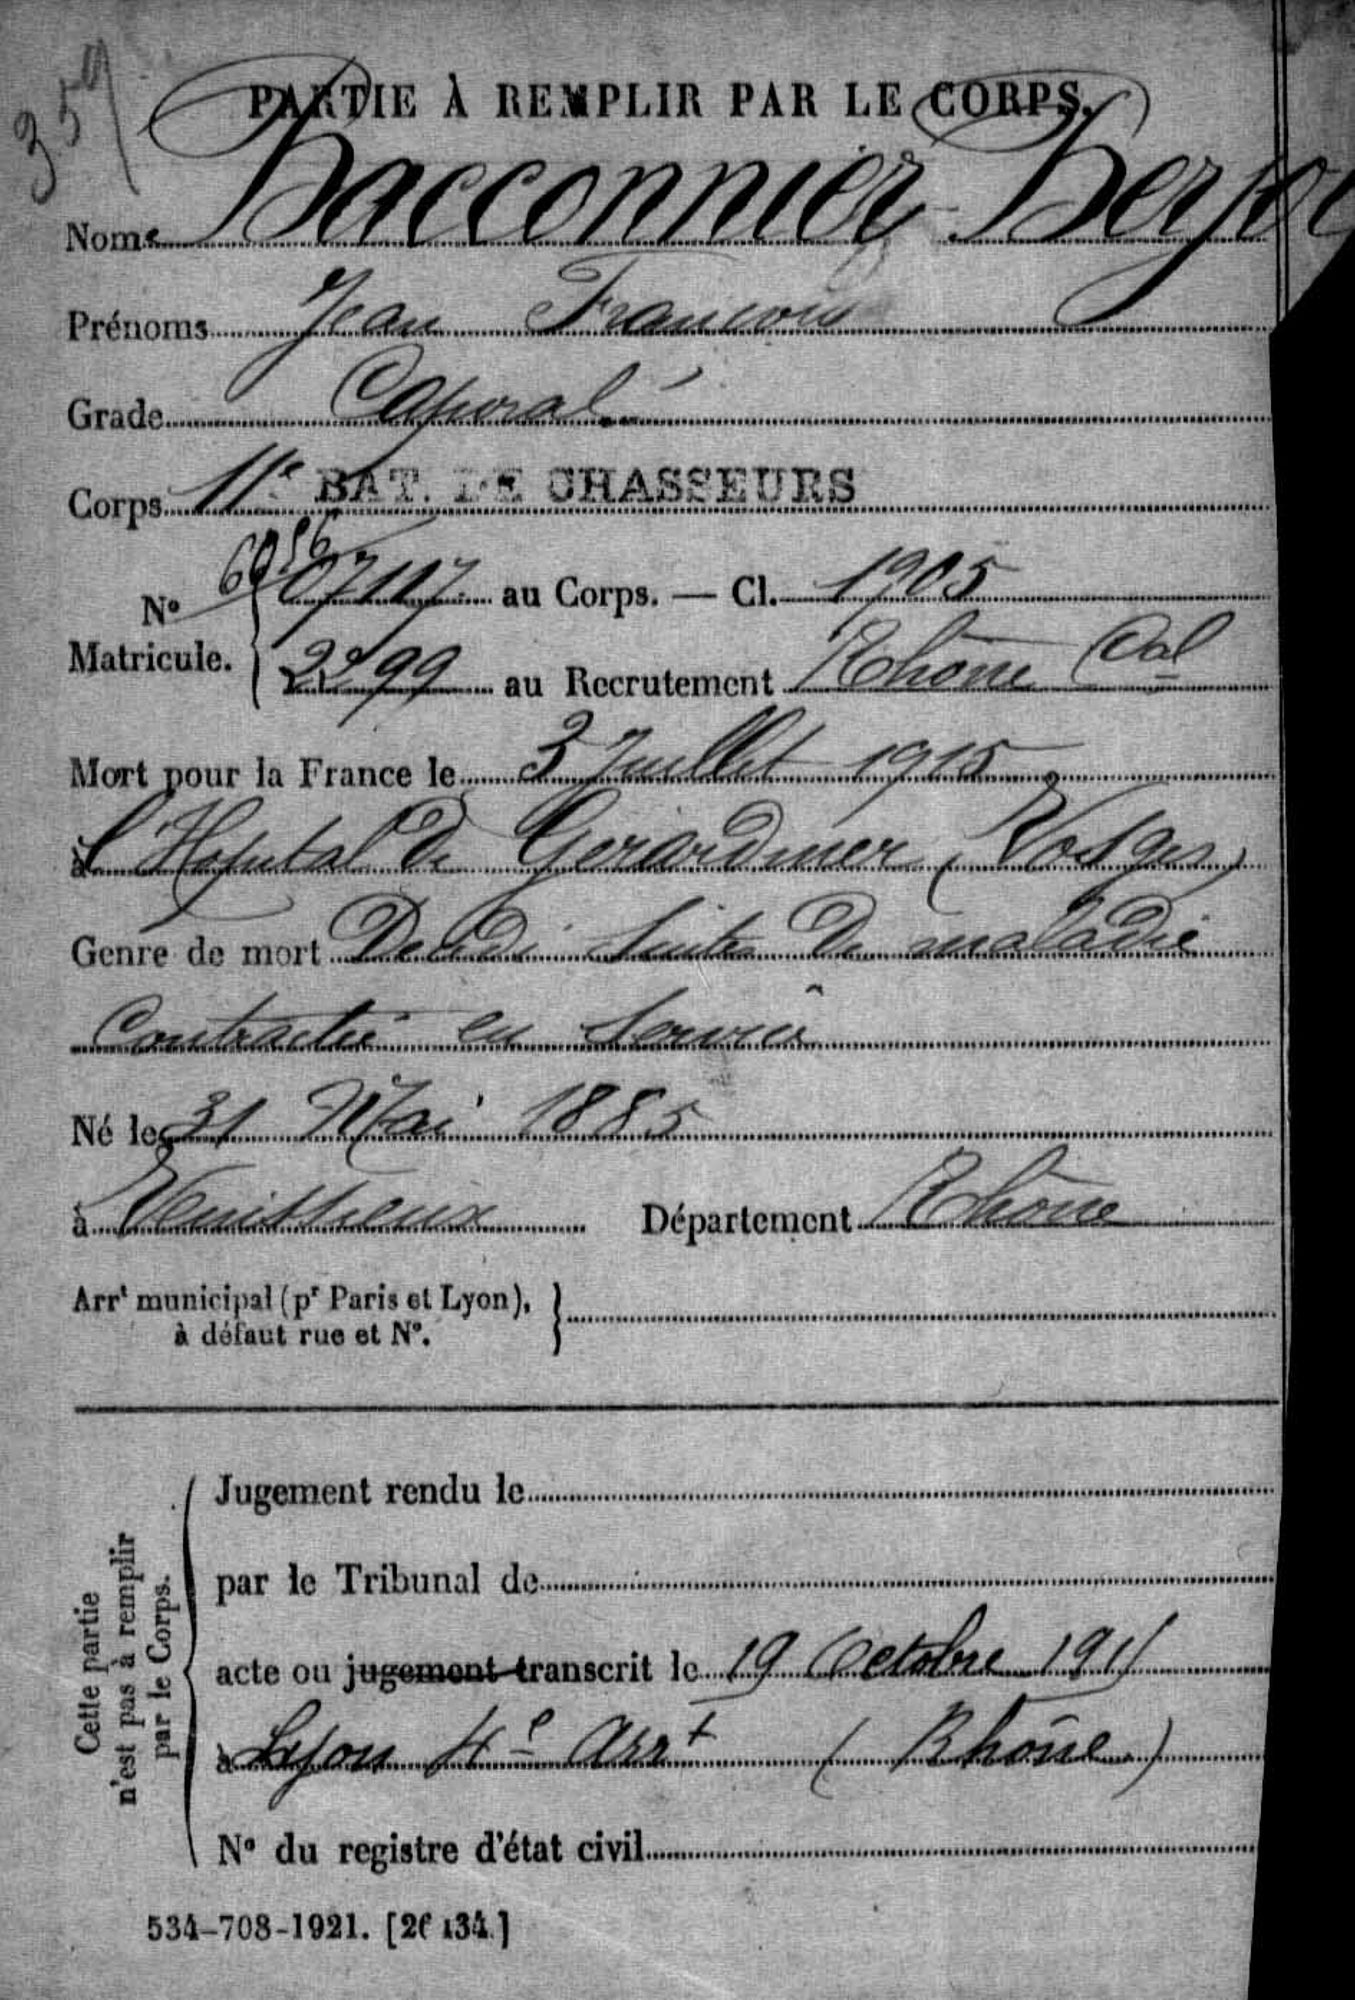 359
PARTIE À REMPLIR PAR LE CORPS.
Nom Bacconnier
Prénoms Jean Francois
Grade Caporal
Corps 11e BAT. DE CHASSEURS
6056
N° 07117 au Corps. — Cl. 1905
Matricule. 2299 au Recrutement Rhône Cal
Mort pour la France le 3 Juillet 1915
à l'Hopital de Gerardmer (Vosges)
Genre de mort Décédé suites de maladie
Contractée en service
Né le 31 Mai 1885
à Venissieux Département Rhône
Arrt municipal (pr Paris et Lyon),
à défaut rue et N°.
Cette partie
n'est pas à remplir
par le Corps.
Jugement rendu le
par le Tribunal de
acte ou jugement transcrit le 19 Octobre 191
à Lyon 4e Arrt (Rhône)
N° du registre d'état civil
534-708-1921. [26134.]